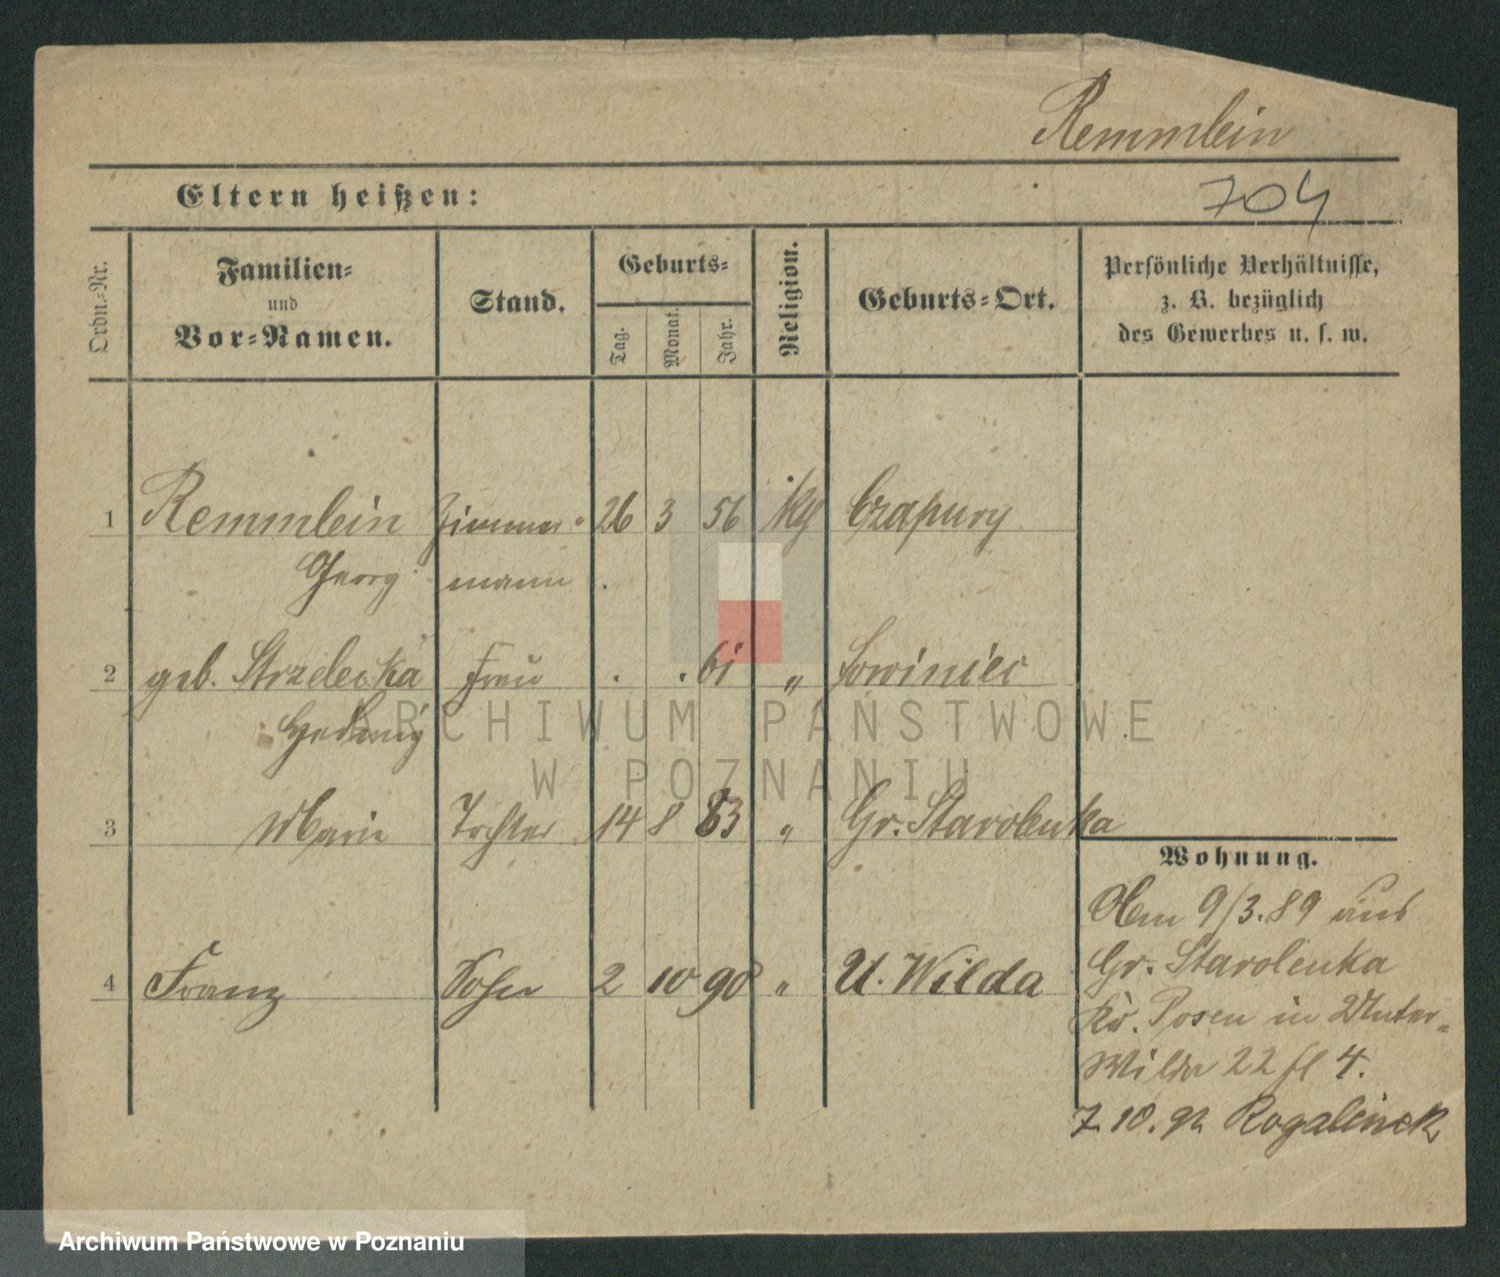 Remmlein
Eltern heißen:
704
Ordn=Nr.
Familien=
und
Vor=Namen.
Stand.
Geburts=
Tag.
Monat.
Jahr.
Religion.
Geburts=Ort.
Persönliche Verhältnisse,
z. B. bezüglich
des Gewerbes u. s. w.
1 Remmlein Zimmer= 26 3 56 kg Czapury
Georg mann
2 geb. Strzelecka Frau . . 61 " Sowiniec
Hedwig
3 Marie Tochter 14 8 83 " Gr. Starolenka
4 Franz Sohn 2 10 90 " U. Wilda
Wohnung.
Am 9/3.89 aus
Gr. Starolenka
Kr. Posen in Unter=
Wilda 22 fl 4.
7.10.92 Rogalinek
ARCHIWUM PAŃSTWOWE
W POZNANIU
Archiwum Państwowe w Poznaniu